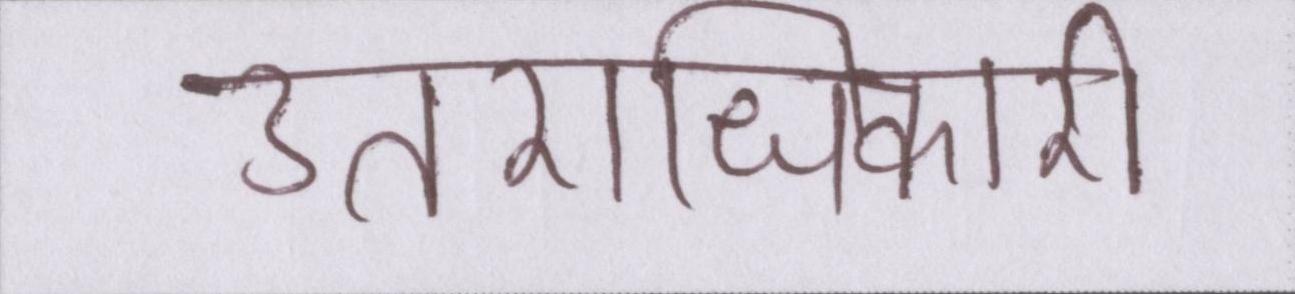 उतराधिकारी